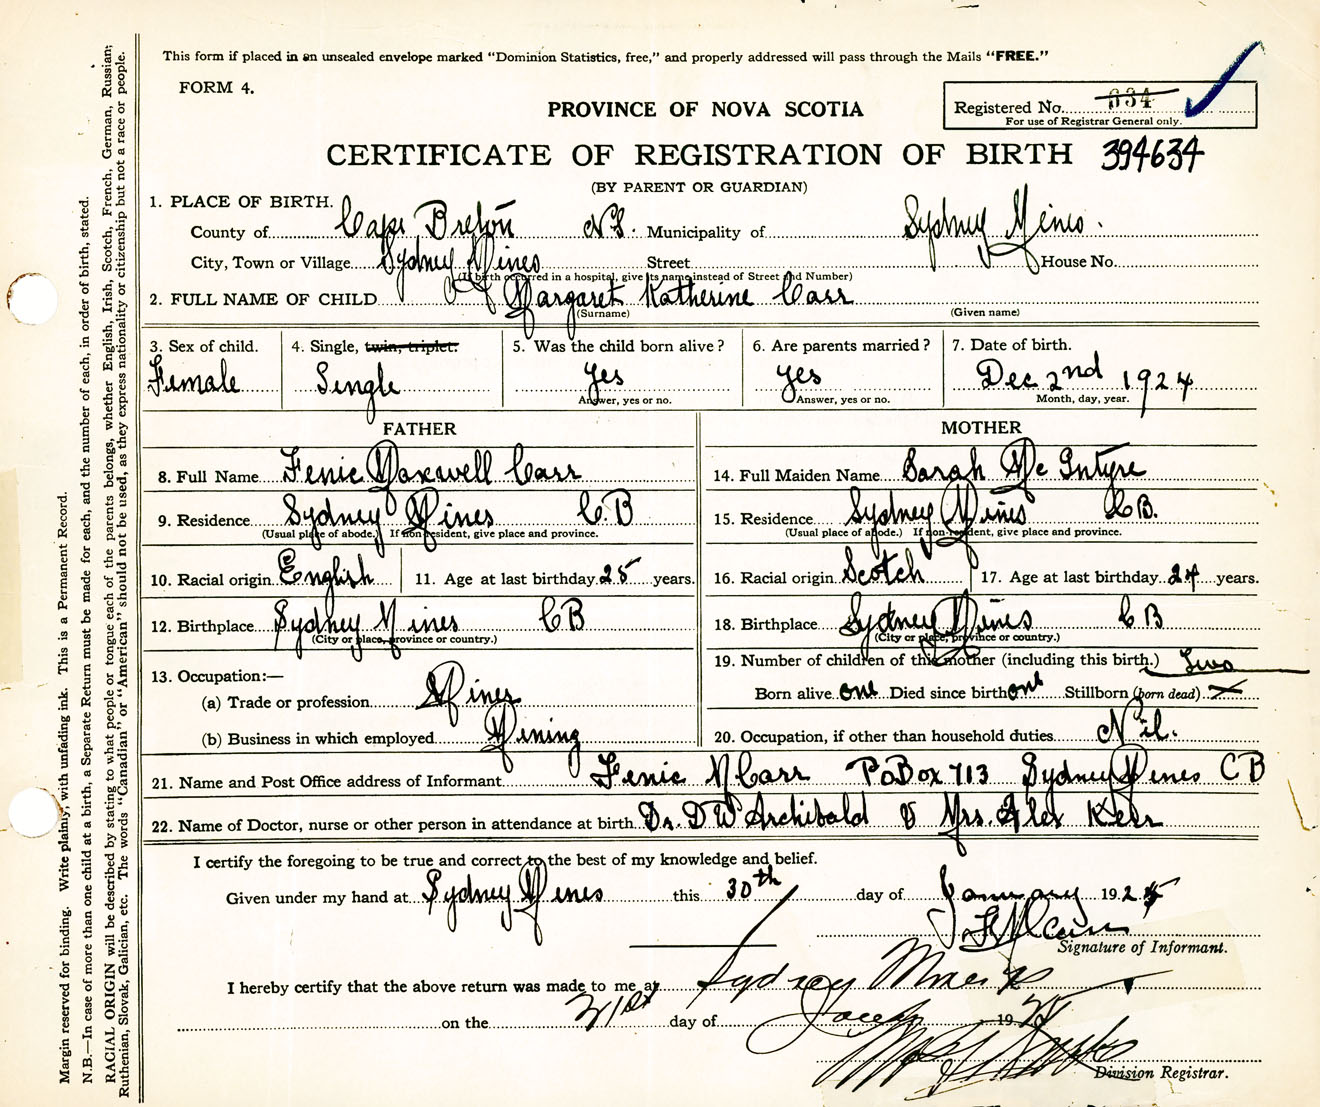 This form if placed in an unsealed envelope marked "Dominion Statistics, free," and properly addressed will pass through the Mails "FREE."
FORM 4.
Registered No. 634
For use of Registrar General only.
PROVINCE OF NOVA SCOTIA
CERTIFICATE OF REGISTRATION OF BIRTH 394634
(BY PARENT OR GUARDIAN)
1. PLACE OF BIRTH.
County of Cape Breton NS. Municipality of Sydney Mines.
City, Town or Village Sydney Mines Street House No.
(If birth occurred in a hospital, give its name instead of Street and Number)
2. FULL NAME OF CHILD Margaret Katherine Carr
(Surname) (Given name)
3. Sex of child. Female
4. Single, twin, triplet. Single
5. Was the child born alive? Yes
Answer, yes or no.
6. Are parents married? Yes
Answer, yes or no.
7. Date of birth. Dec 2nd 1924
Month, day, year.
FATHER
8. Full Name Fenic Maxwell Carr
9. Residence Sydney Mines C.B
(Usual place of abode.) If non-resident, give place and province.
10. Racial origin English 11. Age at last birthday 25 years.
12. Birthplace Sydney Mines CB
(City or place, province or country.)
13. Occupation:—
(a) Trade or profession Miner
(b) Business in which employed Mining
MOTHER
14. Full Maiden Name Sarah McIntyre
15. Residence Sydney Mines CB.
(Usual place of abode.) If non-resident, give place and province.
16. Racial origin Scotch 17. Age at last birthday 24 years.
18. Birthplace Sydney Mines CB
(City or place, province or country.)
19. Number of children of this mother (including this birth.) Two
Born alive one Died since birth one Stillborn (born dead)
20. Occupation, if other than household duties Nil.
21. Name and Post Office address of Informant Fenic M Carr PoBox 713 Sydney Mines CB
22. Name of Doctor, nurse or other person in attendance at birth Dr. DW Archibald & Mrs. Alex Kerr
I certify the foregoing to be true and correct to the best of my knowledge and belief.
Given under my hand at Sydney Mines this 30th day of January 1925
F M Carr
Signature of Informant.
I hereby certify that the above return was made to me at Sydney Mines
on the 31st day of 1925
Division Registrar.
Margin reserved for binding. Write plainly, with unfading ink. This is a Permanent Record.
N.B.—In case of more than one child at a birth, a Separate Return must be made for each, and the number of each, in order of birth, stated.
RACIAL ORIGIN will be described by stating to what people or tongue each of the parents belongs, whether English, Irish, Scotch, French, German, Russian;
Ruthenian, Slovak, Galician, etc. The words "Canadian" or "American" should not be used, as they express nationality or citizenship but not a race or people.